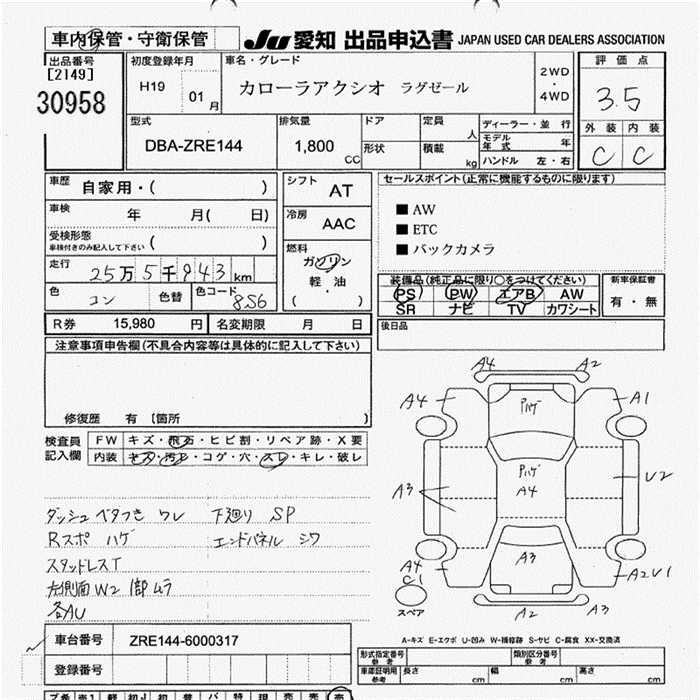 車内保管・守衛保管
JU 愛知 出品申込書 JAPAN USED CAR DEALERS ASSOCIATION
出品番号
[2149]
30958
初度登録年月
H19 01月
車名・グレード
カローラアクシオ ラグゼール
2WD
・
4WD
評価点
3.5
外装 内装
C C
型式
DBA-ZRE144
排気量
1,800 CC
ドア
形状
定員 人
積載 kg
ディーラー・並行
モデル年式 年
ハンドル 左・右
車歴 自家用・( )
車検 年 月( 日)
受検形態
車検付きのみ記入して下さい ( )
走行 25万5千943km
色 コン 色替 色コード 8S6
シフト AT
冷房 AAC
燃料
ガソリン
軽油
・
( )
セールスポイント(正常に機能するものに限ります)
■ AW
■ ETC
■ バックカメラ
装備品(純正品に限り○をつけてください)
PS PW エアB AW
SR ナビ TV カワシート
新車保証書
有・無
後日品
R券 15,980 円 名変期限 月 日
注意事項申告欄(不具合内容等は具体的に記入して下さい)
修復歴 有 [箇所 ]
検査員
記入欄
FW キズ・飛石・ヒビ割・リペア跡・X要
内装 キズ・汚れ・コゲ・穴・スレ・キレ・破レ
ダッシュ ベタつき ワレ 下廻り SP
Rスポ ハゲ エンドパネル シワ
スタッドレスT
左側面 W2 師 ムラ
各AU
A4 A2
A4 Pハゲ A1
Pハゲ
A4
A3 U2
A3
A4
C1
A2U1
スペア
A2 A3
A-キズ E-エクボ U-凹み W-補修跡 S-サビ C-腐食 XX-交換済
車台番号 ZRE144-6000317
登録番号
形式指定番号
参考
類別区分番号
参考
車庫証明用
参考
長さ cm 幅 cm 高さ cm